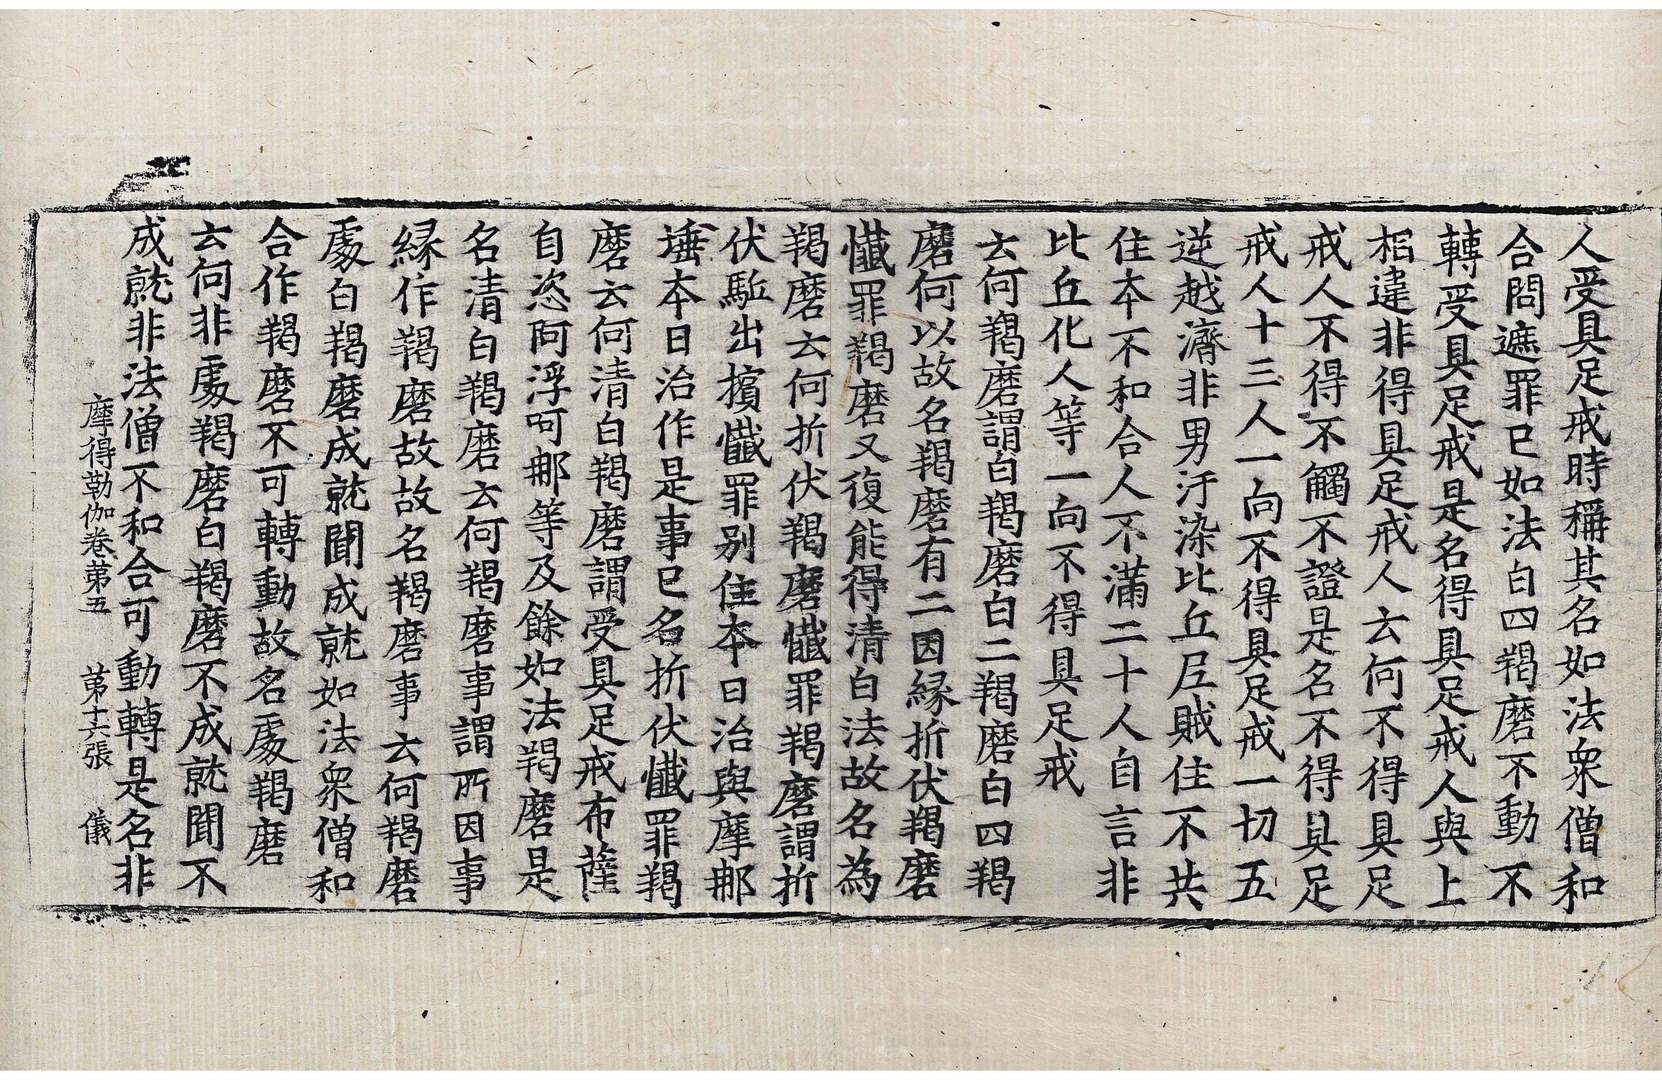 人受具足戒時稱其名如法衆僧和
合問遮罪已如法白四羯磨不動不
轉受具足戒是名得具足戒人與上
相違非得具足戒人云何不得具足
戒人不得不觸不證是名不得具足
戒人十三人一向不得具足戒一切五
逆越濟非男汙染比丘尼賊住不共
住本不和合人不滿二十人自言非
比丘化人等一向不得具足戒
云何羯磨謂白羯磨白二羯磨白四羯
磨何以故名羯磨有二因緣折伏羯磨
懺罪羯磨又復能得清白法故名為
羯磨云何折伏羯磨懺罪羯磨謂折
伏駈出擯懺罪別住本日治與摩那
埵本日治作是事已名折伏懺罪羯
磨云何清白羯磨謂受具足戒布薩
自恣阿浮呵那等及餘如法羯磨是
名清白羯磨云何羯磨事謂所因事
緣作羯磨故故名羯磨事云何羯磨
處白羯磨成就聞成就如法衆僧和
合作羯磨不可轉動故名處羯磨
云何非處羯磨白羯磨不成就聞不
成就非法僧不和合可動轉是名非
摩得勒伽卷第五 第十六張 儀